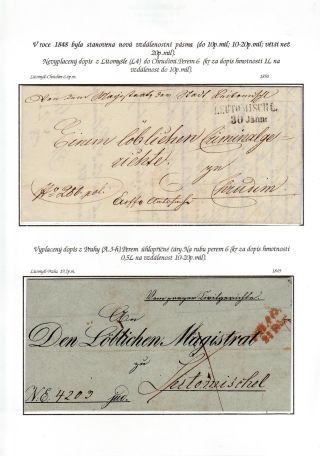 V roce 1848 byla stanovena nová vzdálenostní pásma (do 10p.mil; 10-20p.mil; větší než
20p.mil).
Nevyplacený dopis z Litomyšle (L4) do Chrudimi. Perem 6 (kr za dopis hmotnosti 1L na
vzdálenost do 10p.mil).
Litomyšl-Chrudim
1850
Von dem Magistrate der Stadt Leutomischl
LEUTOMISCHL
30 Jänn:
Einem löblichen Criminalge-
richte
zu
Chrudim
Vyplacený dopis z Prahy (A.3-k) Perem úhlopříčné čáry. Na rubu perem 6 (kr za dopis hmotnosti
0,5L na vzdálenost 10-20p.mil).
Litomyšl-Praha
Vom prager Civilgerichte
An
Den Löblichen Magistrat
zu
N.E. 4203 jud.
Leitomischel